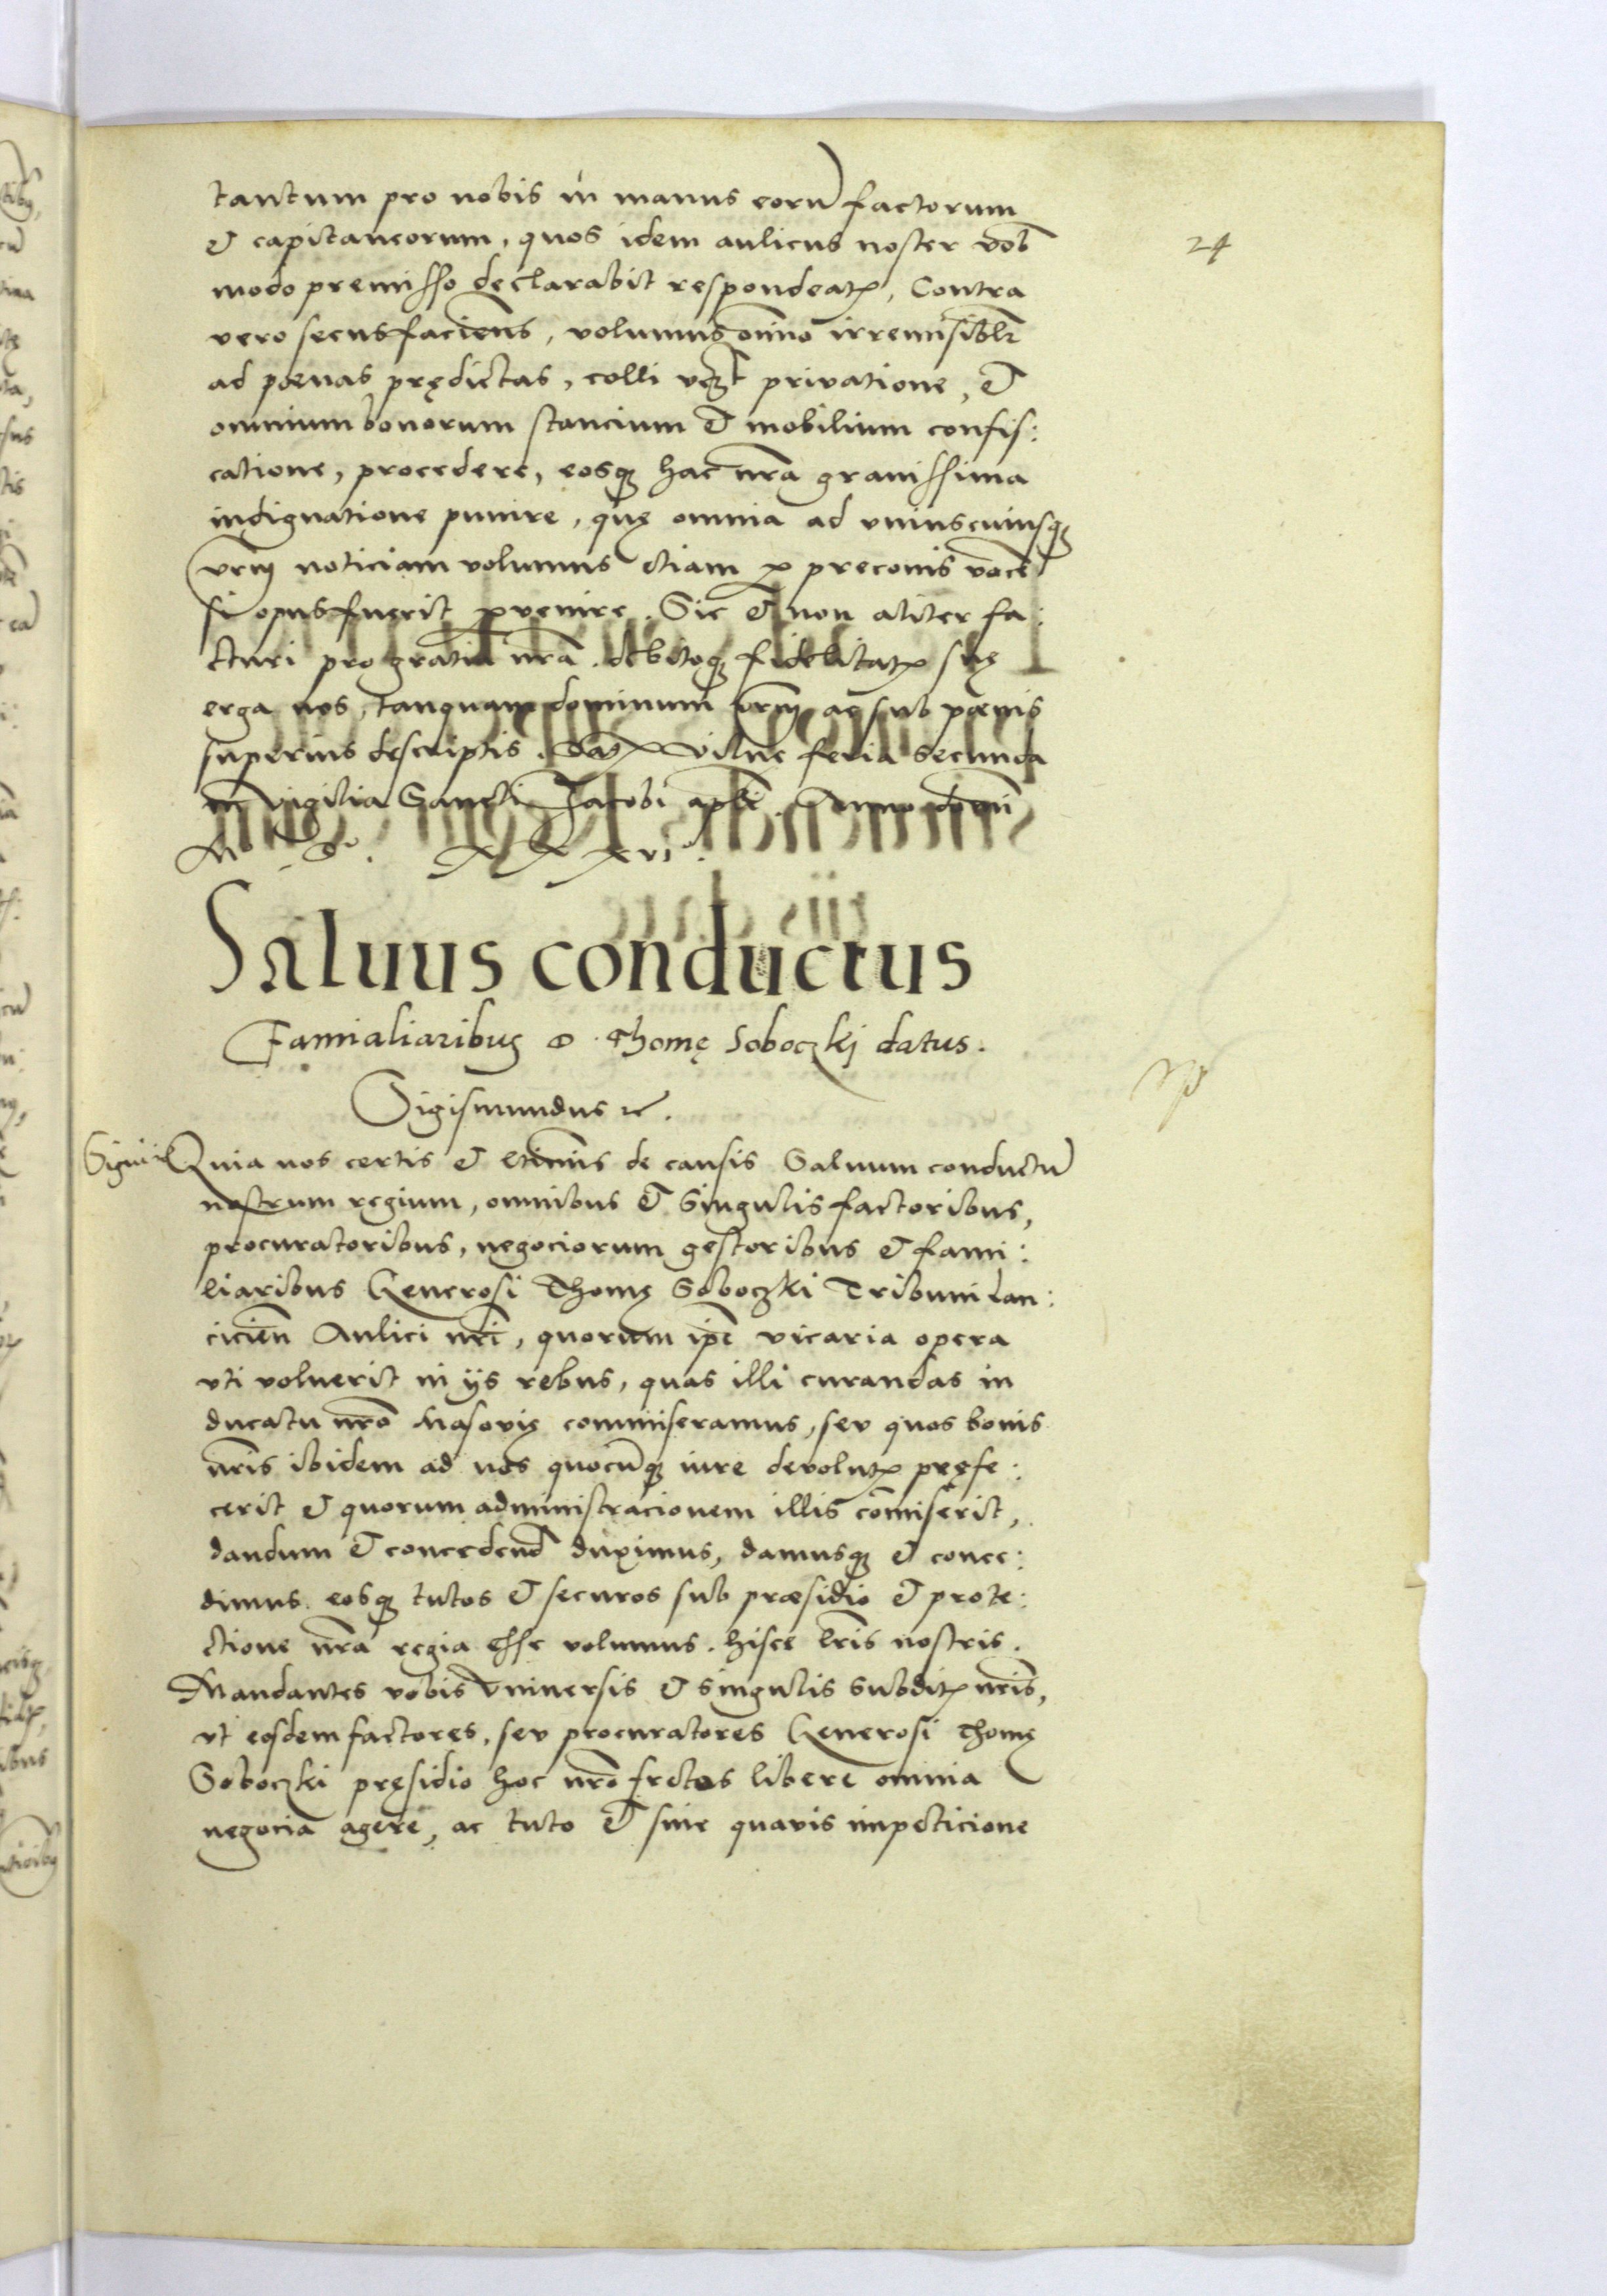 tantum pro nobis in manus eorū factorum
24
et capitaneorum, quos idem aulicus noster vob̄
modo premisso declarabit respondeatꝭ, Contra
vero secus faciens̄, volumus om̄ino irremisibl̄r
ad poenas prędictas, colli vcꝫt priuatione, et
omnium bonorum stancium et mobilium confis:
catione, procedere, eosqꝫ hac nr̄a grauissima
indignatione punire, quę omnia ad vniuscuiusqꝫ
vr̄m noticiam volumus etiam ꝑ preconis vocē
si opus fuerit ꝑvenire. Sic et non aliter fa:
cturi pro gratia nr̄a. debitoqꝫ fidelitatꝭ suę
erga nos, tanquam dominum vr̄m ac sub poenis
superius descriptis. Datꝭ Vilnę feria secunda
in vigilia Sancti Jacobi apl̄i. Anno domī
M° D° XXXVI°.
Saluus conductus
Familiaribus D. Thomę Soboczkj datus.
Sigismundus ꝛc.
Signū Quia nos certis et l̄timis de causis Saluum conductū
nostrum regium, omnibus et Singulis factoribus,
procuratoribus, negociorum gestoribus et fami:
liaribus Generosi Thomę Soboczki Tribuni Lan:
cicien̄ Aulici nr̄i, quorum ip̄e vicaria opera
vti voluerit in ijs rebus, quas illi curandas in
ducatu nr̄o Masovię commiseramus, seu quos bonis
nr̄is ibidem ad nos quocūqꝫ iure devolutꝭ pręfe:
cerit et quorum administracionem illis com̄iserit,
dandum et concedend̄ duximus, damusqꝫ et conce:
dimus. eosqꝫ tutos et securos sub præsidio et prote:
ctione nr̄a regia esse volumus. hisce l̄ris nostris.
Mandantes vobis Vniuersis et singulis subditꝭ nr̄is,
vt eosdem factores, seu procuratores Generosi Thomę
Soboczki pręsidio hoc nr̄o fretos libere omnia
negocia agere, ac tuto et sine quavis impeticione